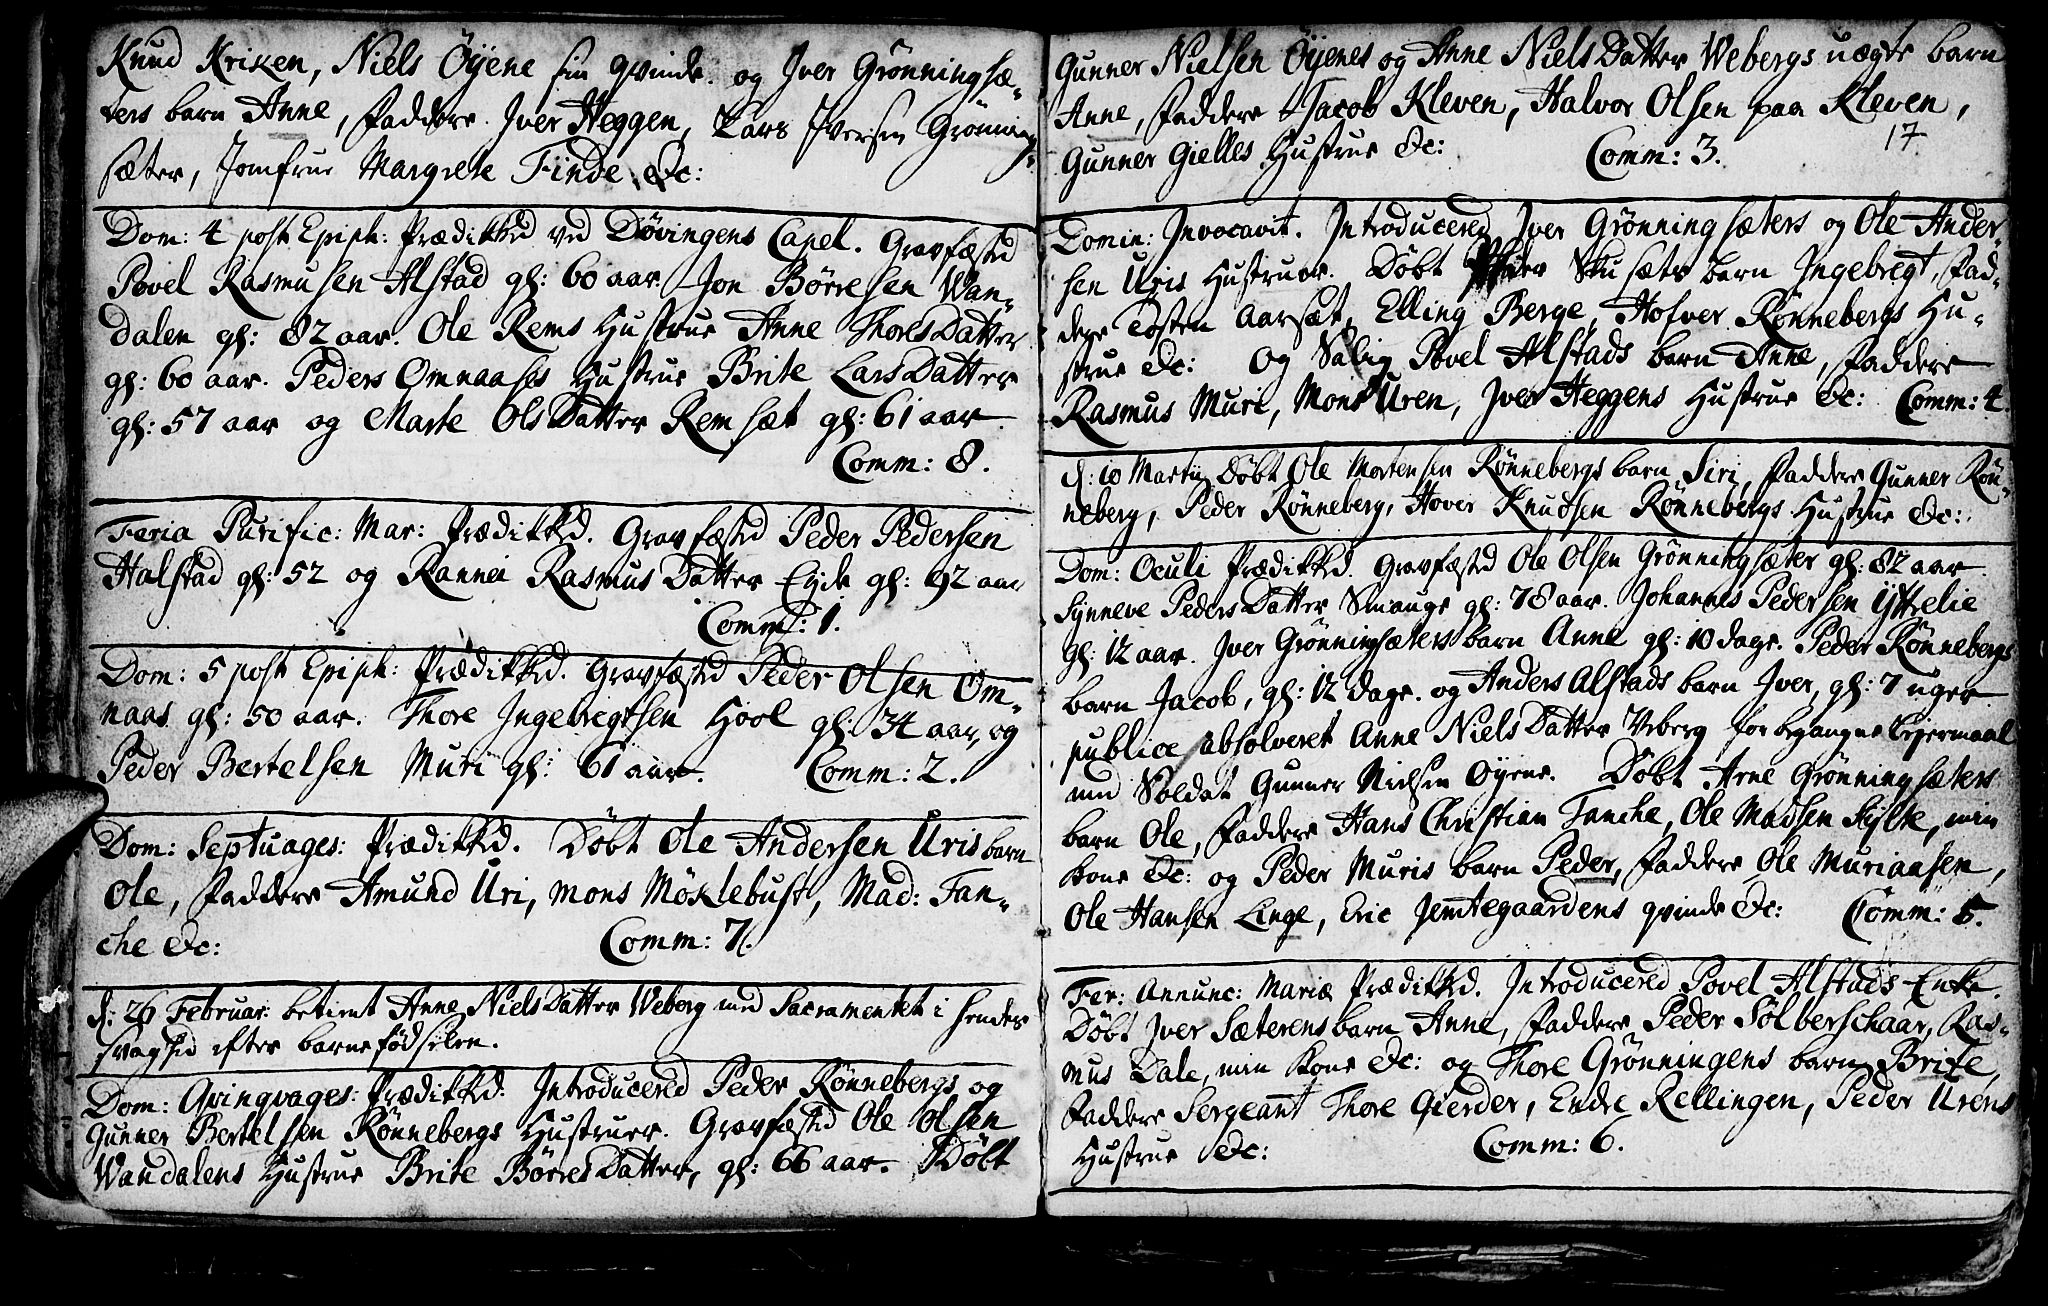 Knud Kriken, Niels Öyene sin qvinde. og Jver Grønningsæ-
ters barn Anne, Faddere. Jver Heggen, Lars Jversen Grönning-
sæter, Jomfrue Margrete Finde &c:
Dom: 4 post Epiph: Prædikked ved Døvingens Capel. Gravfæsted
Povel Rasmusen Alstad gl: 60 aar. Jon Börresen Wan-
dalen gl: 82 aar. Ole Rems Hustrue Anne ThoresDatter
gl: 60 aar. Peders Omnaases Hustrue Brite LarsDatter
gl: 57 aar og Marte OlsDatter Remsæt gl: 61 aar.
Comm: 8.
Feria Purific: Mar: Prædikked. Gravfæsted Peder Pedersen
Halstad gl: 52 og Rannei RasmusDatter Eyde gl: 92 aar
Comm: 1.
Dom: 5 post Epiph: Prædikked. Gravfæsted Peder Olsen Om-
naas gl: 50 aar. Thore Jngebregtsen Hool gl: 34 aar, og
Peder Bertelsen Muri gl: 61 aar. Comm: 2.
Dom: Septuages: Prædikked. Döbt Ole Andersen Uris barn
Ole, Faddere Amund Uri, Mons Möklebust, Mad: Fan-
che &c: Comm: 7.
d: 26 Februar: betient Anne NielsDatter Weberg med Sacramentet i hendes
svaghed efter barnefödselen.
Dom: Qvinqvages: Prædikked. Introducered Peder Rönnebergs og
Gunner Bertelsen Rönnebergs Hustruer. Gravfæsted Ole Olsen
Wandalens Hustrue Brite BörresDatter, gl: 66 aar. Döbt
Gunner Nielsen Öyenes og Anne NielsDatter Webergs uægte barn
Anne, Faddere Jacob Kleven, Halvor Olsen paa Kleven,
17
Gunner Gielles Hustrue &c: Comm: 3.
Domin: Jnvocavit. Introducered Jver Grønningsæters og Ole Ander-
sen Uris Hustruer. Döbt Skusæts barn Jngebregt, Fad-
dere Tosten Aarsæt, Elling Berge, Hofver Rønnebergs Hu-
strue &c: Og Salig Povel Alstads barn Anne, Faddere
Rasmus Muri, Mons Uren, Jver Heggens Hustrue &c: Comm: 4.
d: 10 Martij Döbt Ole Mortensen Rönnebergs barn Siri, Faddere Gunner Rön-
neberg, Peder Rönneberg, Hover Knudsen Rönnebergs Hustrue &c:
Dom: Oculi Prædikked. Gravfæsted Ole Olsen Grönningsæter gl: 82 aar.
Synneve PedersDatter Smauge gl: 78 aar. Johannes Pedersen Yttrelie
gl: 12 aar. Jver Grönningsæters barn Anne gl: 10 dage. Peder Rönnebergs
barn Jacob, gl: 12 dage. og Anders Alstads barn Jver, gl: 7 uger
publice absolveret Anne NielsDatter Veberg for begangne Leyermaal
med Soldat Gunner Nielsen Öyene. Döbt Arne Grönningsæters
barn Ole, Faddere Hans Christian Fanche, Ole Madsen Sylte, min
kone &c: og Peder Muris barn Peder, Faddere Ole Muriaasen,
Ole Hansen Linge, Eric Jemtegaardens qvinde &c: Comm: 5.
Fer: Annunc: Mariæ Prædikked. Introducered Povel Alstads Enke.
Döbt Jver Sæterens barn Anne, Faddere Peder Sölberschaar, Ras-
mus Dale, min kone &c: og Thore Grönningens barn Brite,
Faddere Sergeant Thore Gierder, Endre Rellingen, Peder Urens
Hustrue &c: Comm: 6.